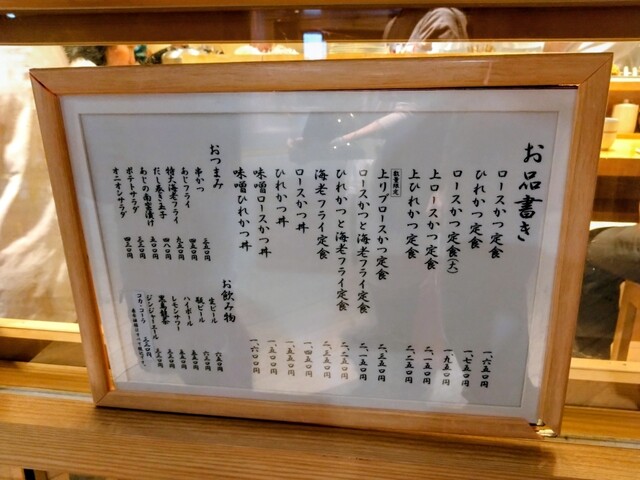 お品書き
ロースかつ定食 一、六五〇円
ひれかつ定食 一、七五〇円
ロースかつ定食(大) 一、九五〇円
上ロースかつ定食 二、一五〇円
上ひれかつ定食 二、二五〇円
数量限定
上リブロースかつ定食 二、三五〇円
ロースかつと海老フライ定食 二、一五〇円
ひれかつと海老フライ定食 二、二五〇円
海老フライ定食 二、三五〇円
ロースかつ丼 一、四五〇円
ひれかつ丼 一、五五〇円
味噌ロースかつ丼 一、五〇〇円
味噌ひれかつ丼 一、六〇〇円
おつまみ
串かつ
あじフライ 四五〇円
特大海老フライ 九五〇円
だし巻き玉子 四八〇円
あじの南蛮漬け 五〇〇円
ポテトサラダ
オニオンサラダ 四五〇円
お飲み物
生ビール 六五〇円
瓶ビール 六五〇円
ハイボール 五五〇円
レモンサワー 五五〇円
黒烏龍茶
ジンジャーエール
コカ・コーラ